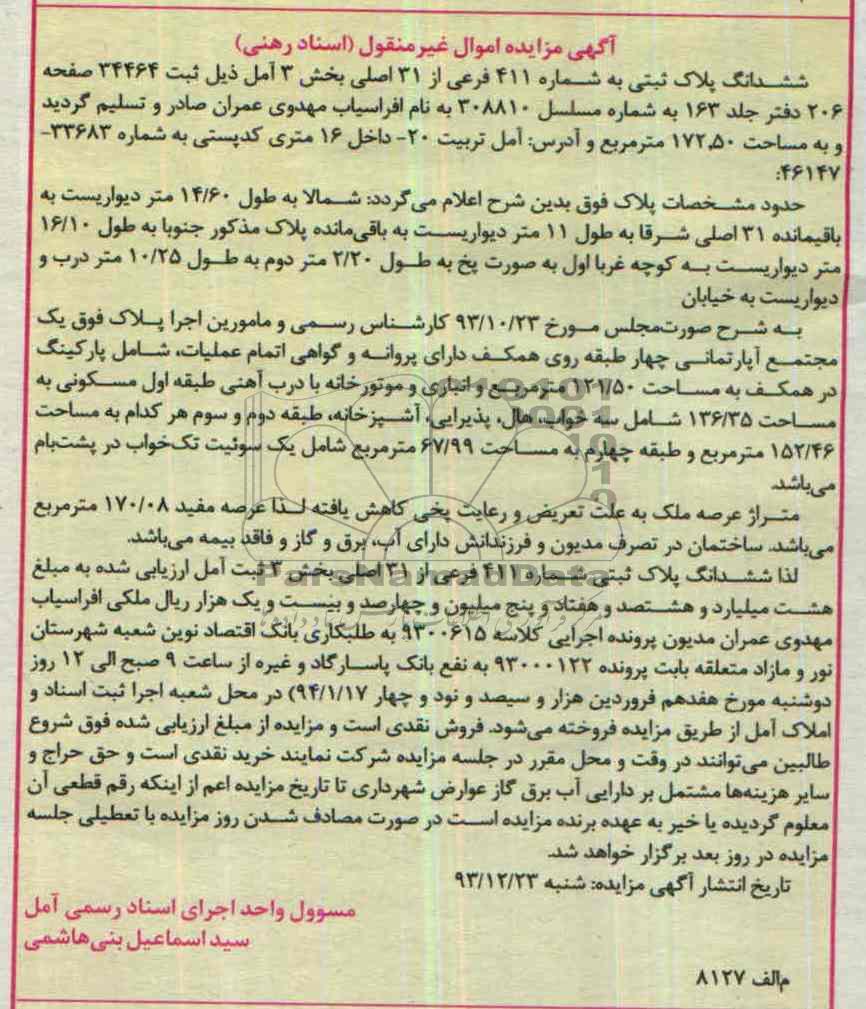 آگهی مزایده اموال غیرمنقول (اسناد رهنی)
ششدانگ پلاک ثبتی به شماره ۴۱۱ فرعی از ۳۱ اصلی بخش ۳ آمل ذیل ثبت ۳۴۴۶۴ صفحه
۲۰۶ دفتر جلد ۱۶۳ به شماره مسلسل ۳۰۸۸۱۰ به نام افراسیاب مهدوی عمران صادر و تسلیم گردید
و به مساحت ۱۷۲,۵۰ مترمربع و آدرس: آمل تربیت ۲۰- داخل ۱۶ متری کدپستی به شماره ۳۳۶۸۳-
۴۶۱۴۷:
حدود مشخصات پلاک فوق بدین شرح اعلام می‌گردد: شمالا به طول ۱۴/۶۰ متر دیواریست به
باقیمانده ۳۱ اصلی شرقا به طول ۱۱ متر دیواریست به باقی‌مانده پلاک مذکور جنوبا به طول ۱۶/۱۰
متر دیواریست به کوچه غربا اول به صورت پخ به طول ۲/۲۰ متر دوم به طول ۱۰/۲۵ متر درب و
دیواریست به خیابان
به شرح صورت‌مجلس مورخ ۹۳/۱۰/۲۳ کارشناس رسمی و مامورین اجرا پلاک فوق یک
مجتمع آپارتمانی چهار طبقه روی همکف دارای پروانه و گواهی اتمام عملیات، شامل پارکینگ
در همکف به مساحت ۱۲۱/۵۰ مترمربع و انباری و موتورخانه با درب آهنی طبقه اول مسکونی به
مساحت ۱۳۶/۳۵ شامل سه خواب، هال، پذیرایی، آشپزخانه، طبقه دوم و سوم هر کدام به مساحت
۱۵۲/۴۶ مترمربع و طبقه چهارم به مساحت ۶۷/۹۹ مترمربع شامل یک سوئیت تک‌خواب در پشت‌بام
می‌باشد.
متراژ عرصه ملک به علت تعریض و رعایت پخی کاهش یافته لذا عرصه مفید ۱۷۰/۰۸ مترمربع
می‌باشد. ساختمان در تصرف مدیون و فرزندانش دارای آب، برق و گاز و فاقد بیمه می‌باشد.
لذا ششدانگ پلاک ثبتی شماره ۴۱۱ فرعی از ۳۱ اصلی بخش ۳ ثبت آمل ارزیابی شده به مبلغ
هشت میلیارد و هشتصد و هفتاد و پنج میلیون و چهارصد و بیست و یک هزار ریال ملکی افراسیاب
مهدوی عمران مدیون پرونده اجرایی کلاسه ۹۳۰۰۶۱۵ به طلبکاری بانک اقتصاد نوین شعبه شهرستان
نور و مازاد متعلقه بابت پرونده ۹۳۰۰۰۱۲۲ به نفع بانک پاسارگاد و غیره از ساعت ۹ صبح الی ۱۲ روز
دوشنبه مورخ هفدهم فروردین هزار و سیصد و نود و چهار ۹۴/۱/۱۷) در محل شعبه اجرا ثبت اسناد و
املاک آمل از طریق مزایده فروخته می‌شود. فروش نقدی است و مزایده از مبلغ ارزیابی شده فوق شروع
طالبین می‌توانند در وقت و محل مقرر در جلسه مزایده شرکت نمایند خرید نقدی است و حق حراج و
سایر هزینه‌ها مشتمل بر دارایی آب برق گاز عوارض شهرداری تا تاریخ مزایده اعم از اینکه رقم قطعی آن
معلوم گردیده یا خیر به عهده برنده مزایده است در صورت مصادف شدن روز مزایده با تعطیلی جلسه
مزایده در روز بعد برگزار خواهد شد.
تاریخ انتشار آگهی مزایده: شنبه ۹۳/۱۲/۲۳
مسوول واحد اجرای اسناد رسمی آمل
سید اسماعیل بنی‌هاشمی
م‌الف ۸۱۲۷